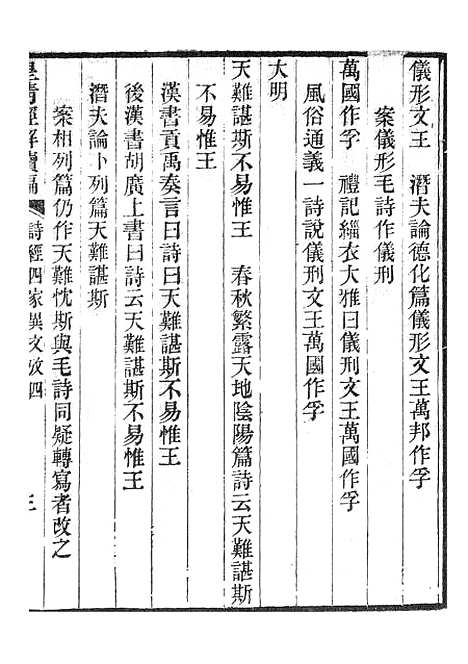 儀形文王　潛夫論德化篇儀形文王萬邦作孚
案儀形毛詩作儀刑
萬國作孚　禮記緇衣大雅曰儀刑文王萬國作孚
風俗通義一詩說儀刑文王萬國作孚
大明
天難諶斯不易惟王　春秋繁露天地陰陽篇詩云天難諶斯
不易惟王
漢書貢禹奏言曰詩曰天難諶斯不易惟王
後漢書胡廣上書曰詩云天難諶斯不易惟王
潛夫論卜列篇天難諶斯
案相列篇仍作天難忱斯與毛詩同疑轉寫者改之
皇清經解續編　詩經四家異文攷四　三